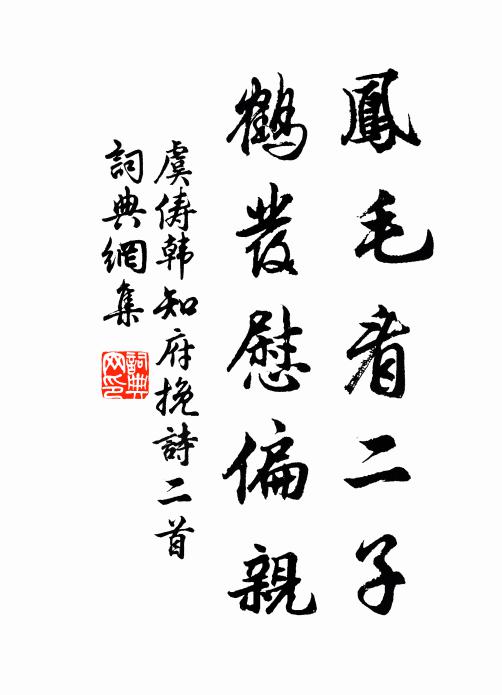 鳳毛看二子
鶴發慰偏親
虞儔韓知府挽詩二首
詞典網集
詞典
网印